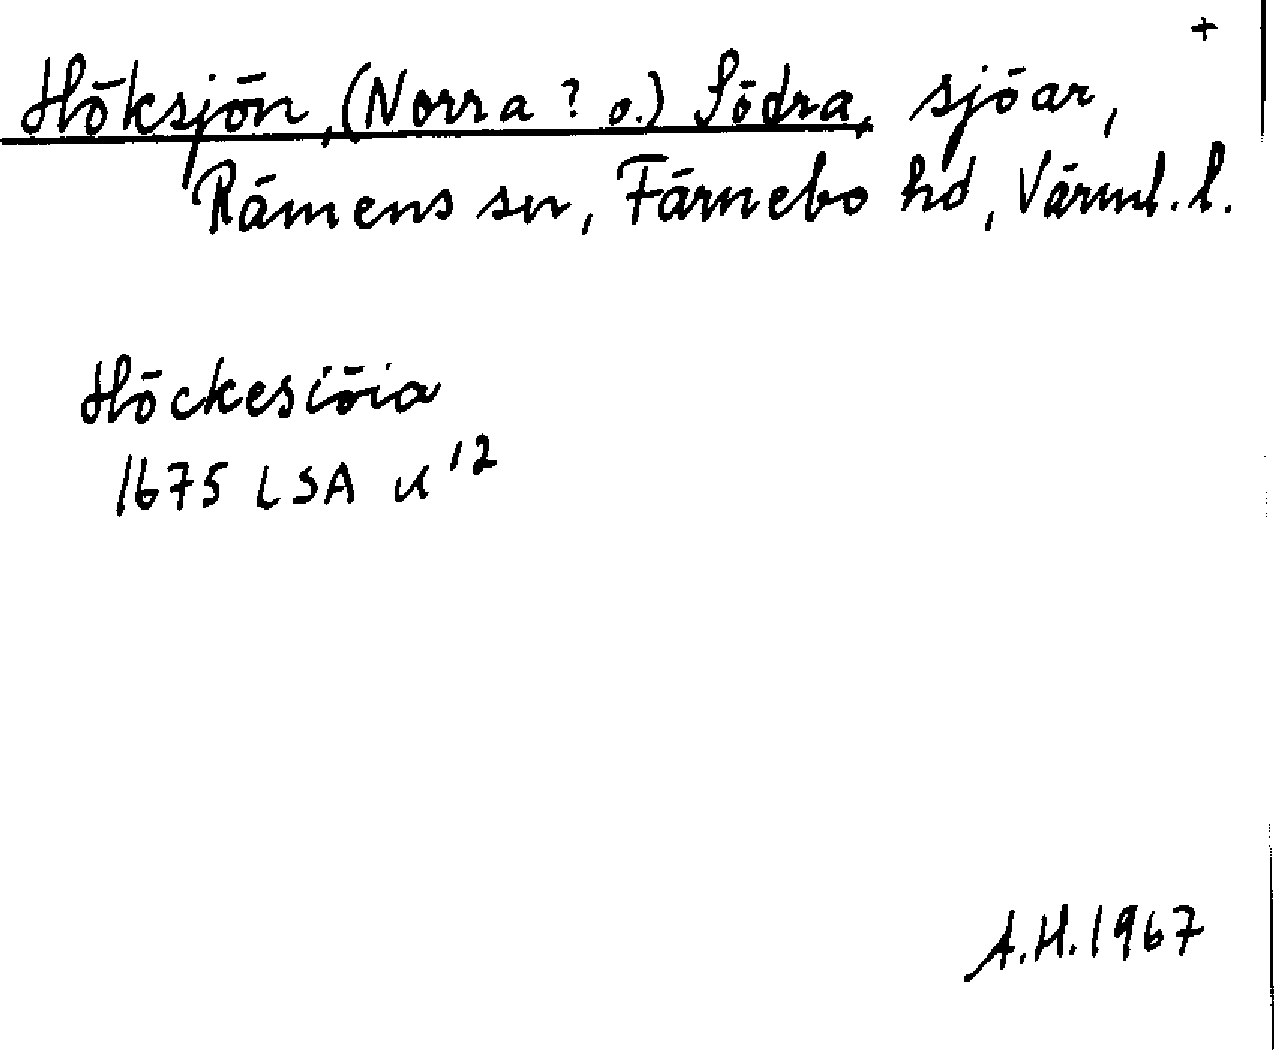 +
Höksjön, (Norra? o.) Södra, sjöar,
Rämens sn, Färnebo hd, Värml. l.
Höckesiöia
1675 LSA U 12
A.H. 1967